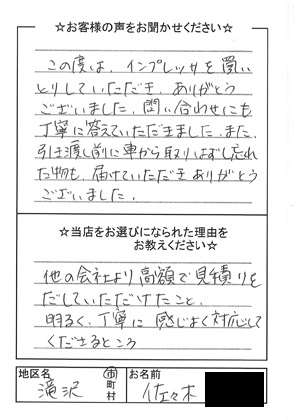 ☆お客様の声をお聞かせください☆
この度は、インプレッサを買い
とりしていただき、ありがとう
ございました。問い合わせにも、
丁寧に答えていただきました。また、
引き渡し前に車から取りはずし忘れ
た物も、届けていただき ありがとう
ございました。
☆当店をお選びになられた理由を
お教えください☆
他の会社より高額で見積りを
だしていただけたこと。
明るく、丁寧に 感じよく対応して
くださるところ
地区名 滝沢 市町村
お名前 佐々木